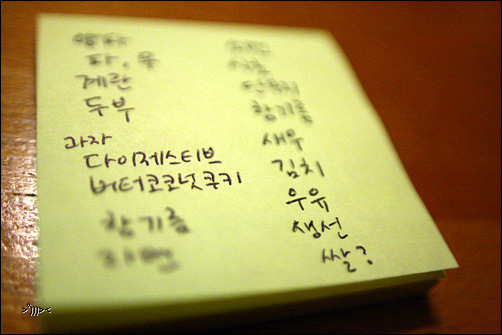 양파
파, 무
계란
두부
과자
다이제스티브
버터코코넛쿠키
참기름
라면
단무지
참기름
새우
김치
우유
생선
쌀?
>°)))><